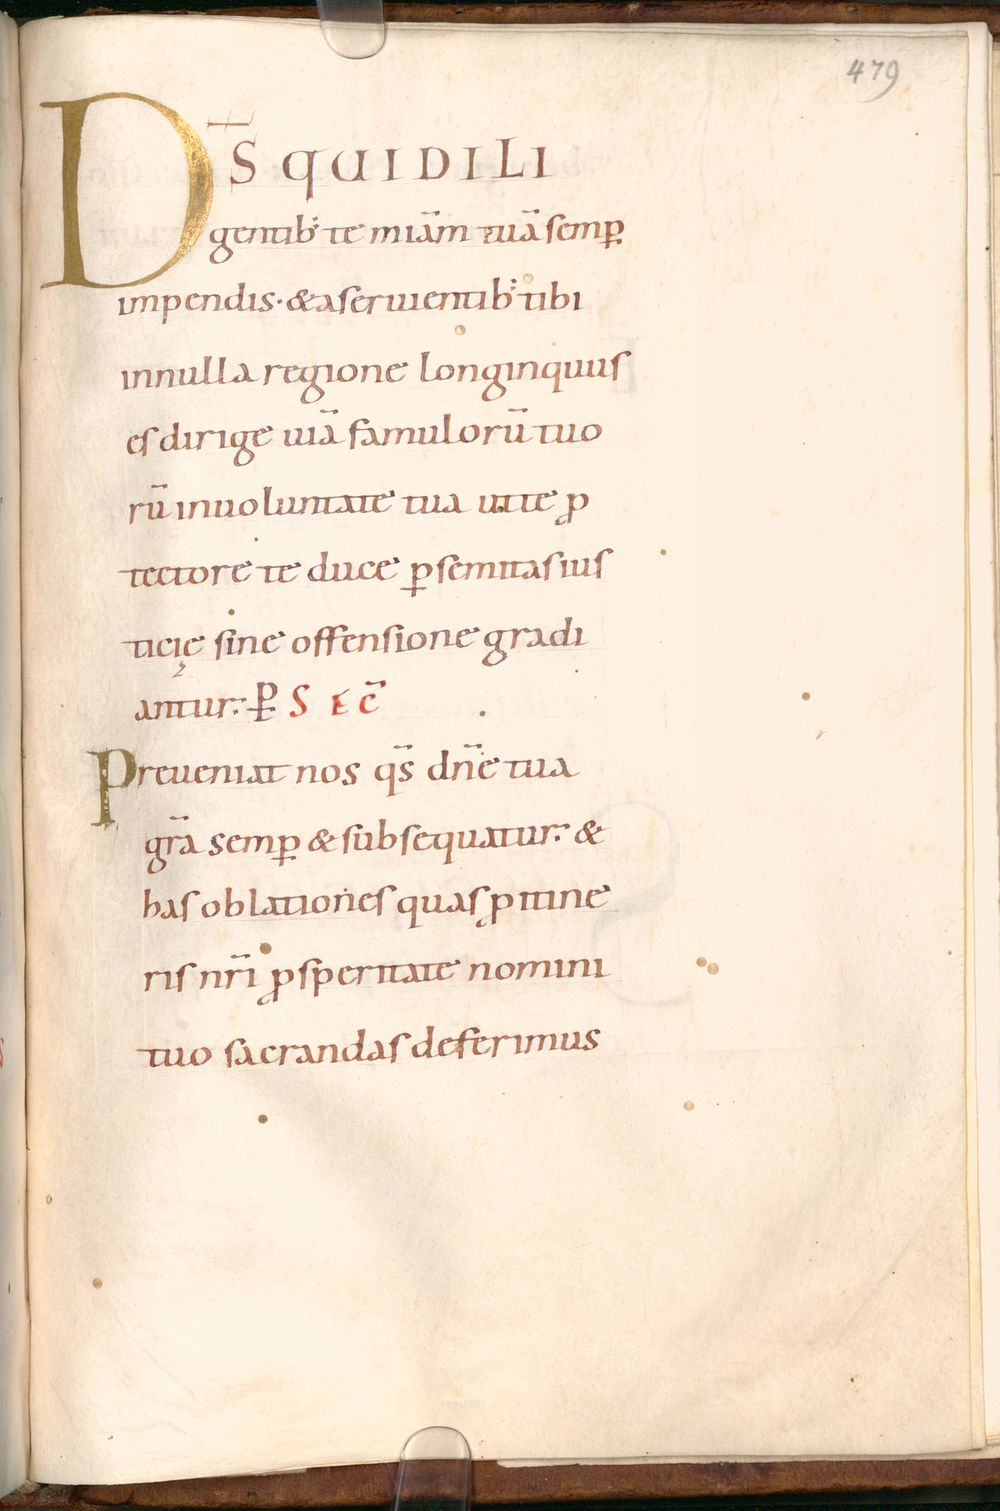 479
DS̄ QUI DILI
gentib; te miām tuā semꝑ
impendis. & a seruientib; tibi
in nulla regione longinquus
es dirige uiā famulorū tuo
rū in uoluntate tua ut te ꝓ
tectore te duce ꝑ semitas ius
ticię sine offensione gradi
antur. ꝑ S E C̄
Preueniat nos qs̄ dn̄e tua
gr̄a semꝑ & subsequatur. &
has oblationes quas ꝓ itine
ris nr̄i ꝓsperitate nomini
tuo sacrandas deferimus